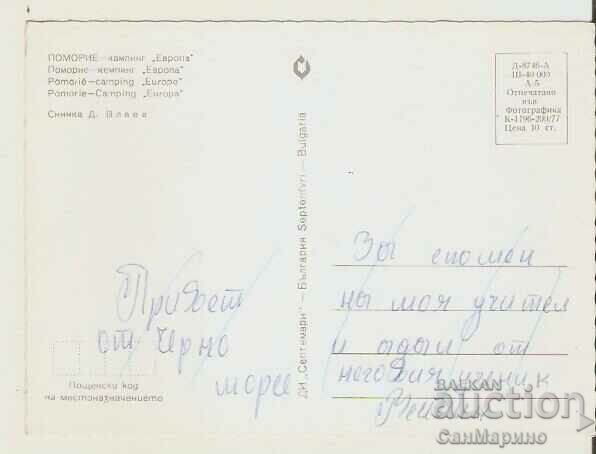 ПОМОРИЕ – къмпинг „Европа"
Поморие – кемпинг „Европа"
Pomorié – camping „Europe"
Pomorie – Camping „Europa"
Снимка Д. Влаев
ДИ „Септември" – България Septemvri – Bulgaria
Д-8746-А
Ш-40 000
А-5
Отпечатано
във
Фотографика
К-1196-200/77
Цена 10 ст.
Привет
от Черно
море
Пощенски код
на местоназначението
За спомен
на моя учител
и от
неговия ученик
BALKAN
auction
СанМарино